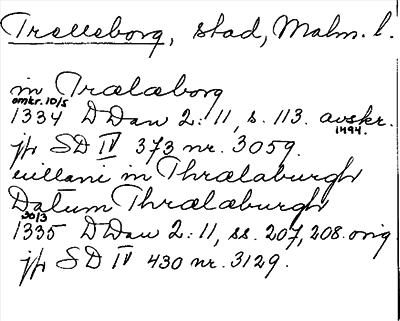 Trelleborg, stad, Malm. l.
in Trælæborg
omkr. 10/5
1334 D Dan 2:11, s. 113. avskr.
1494.
jfr SD IV 373 nr. 3059.
uillani in Thrælaburgh
Datum Thrælæburgh
30/3
1335 D Dan 2:11, ss. 207, 208. orig
jfr SD IV 430 nr. 3129.